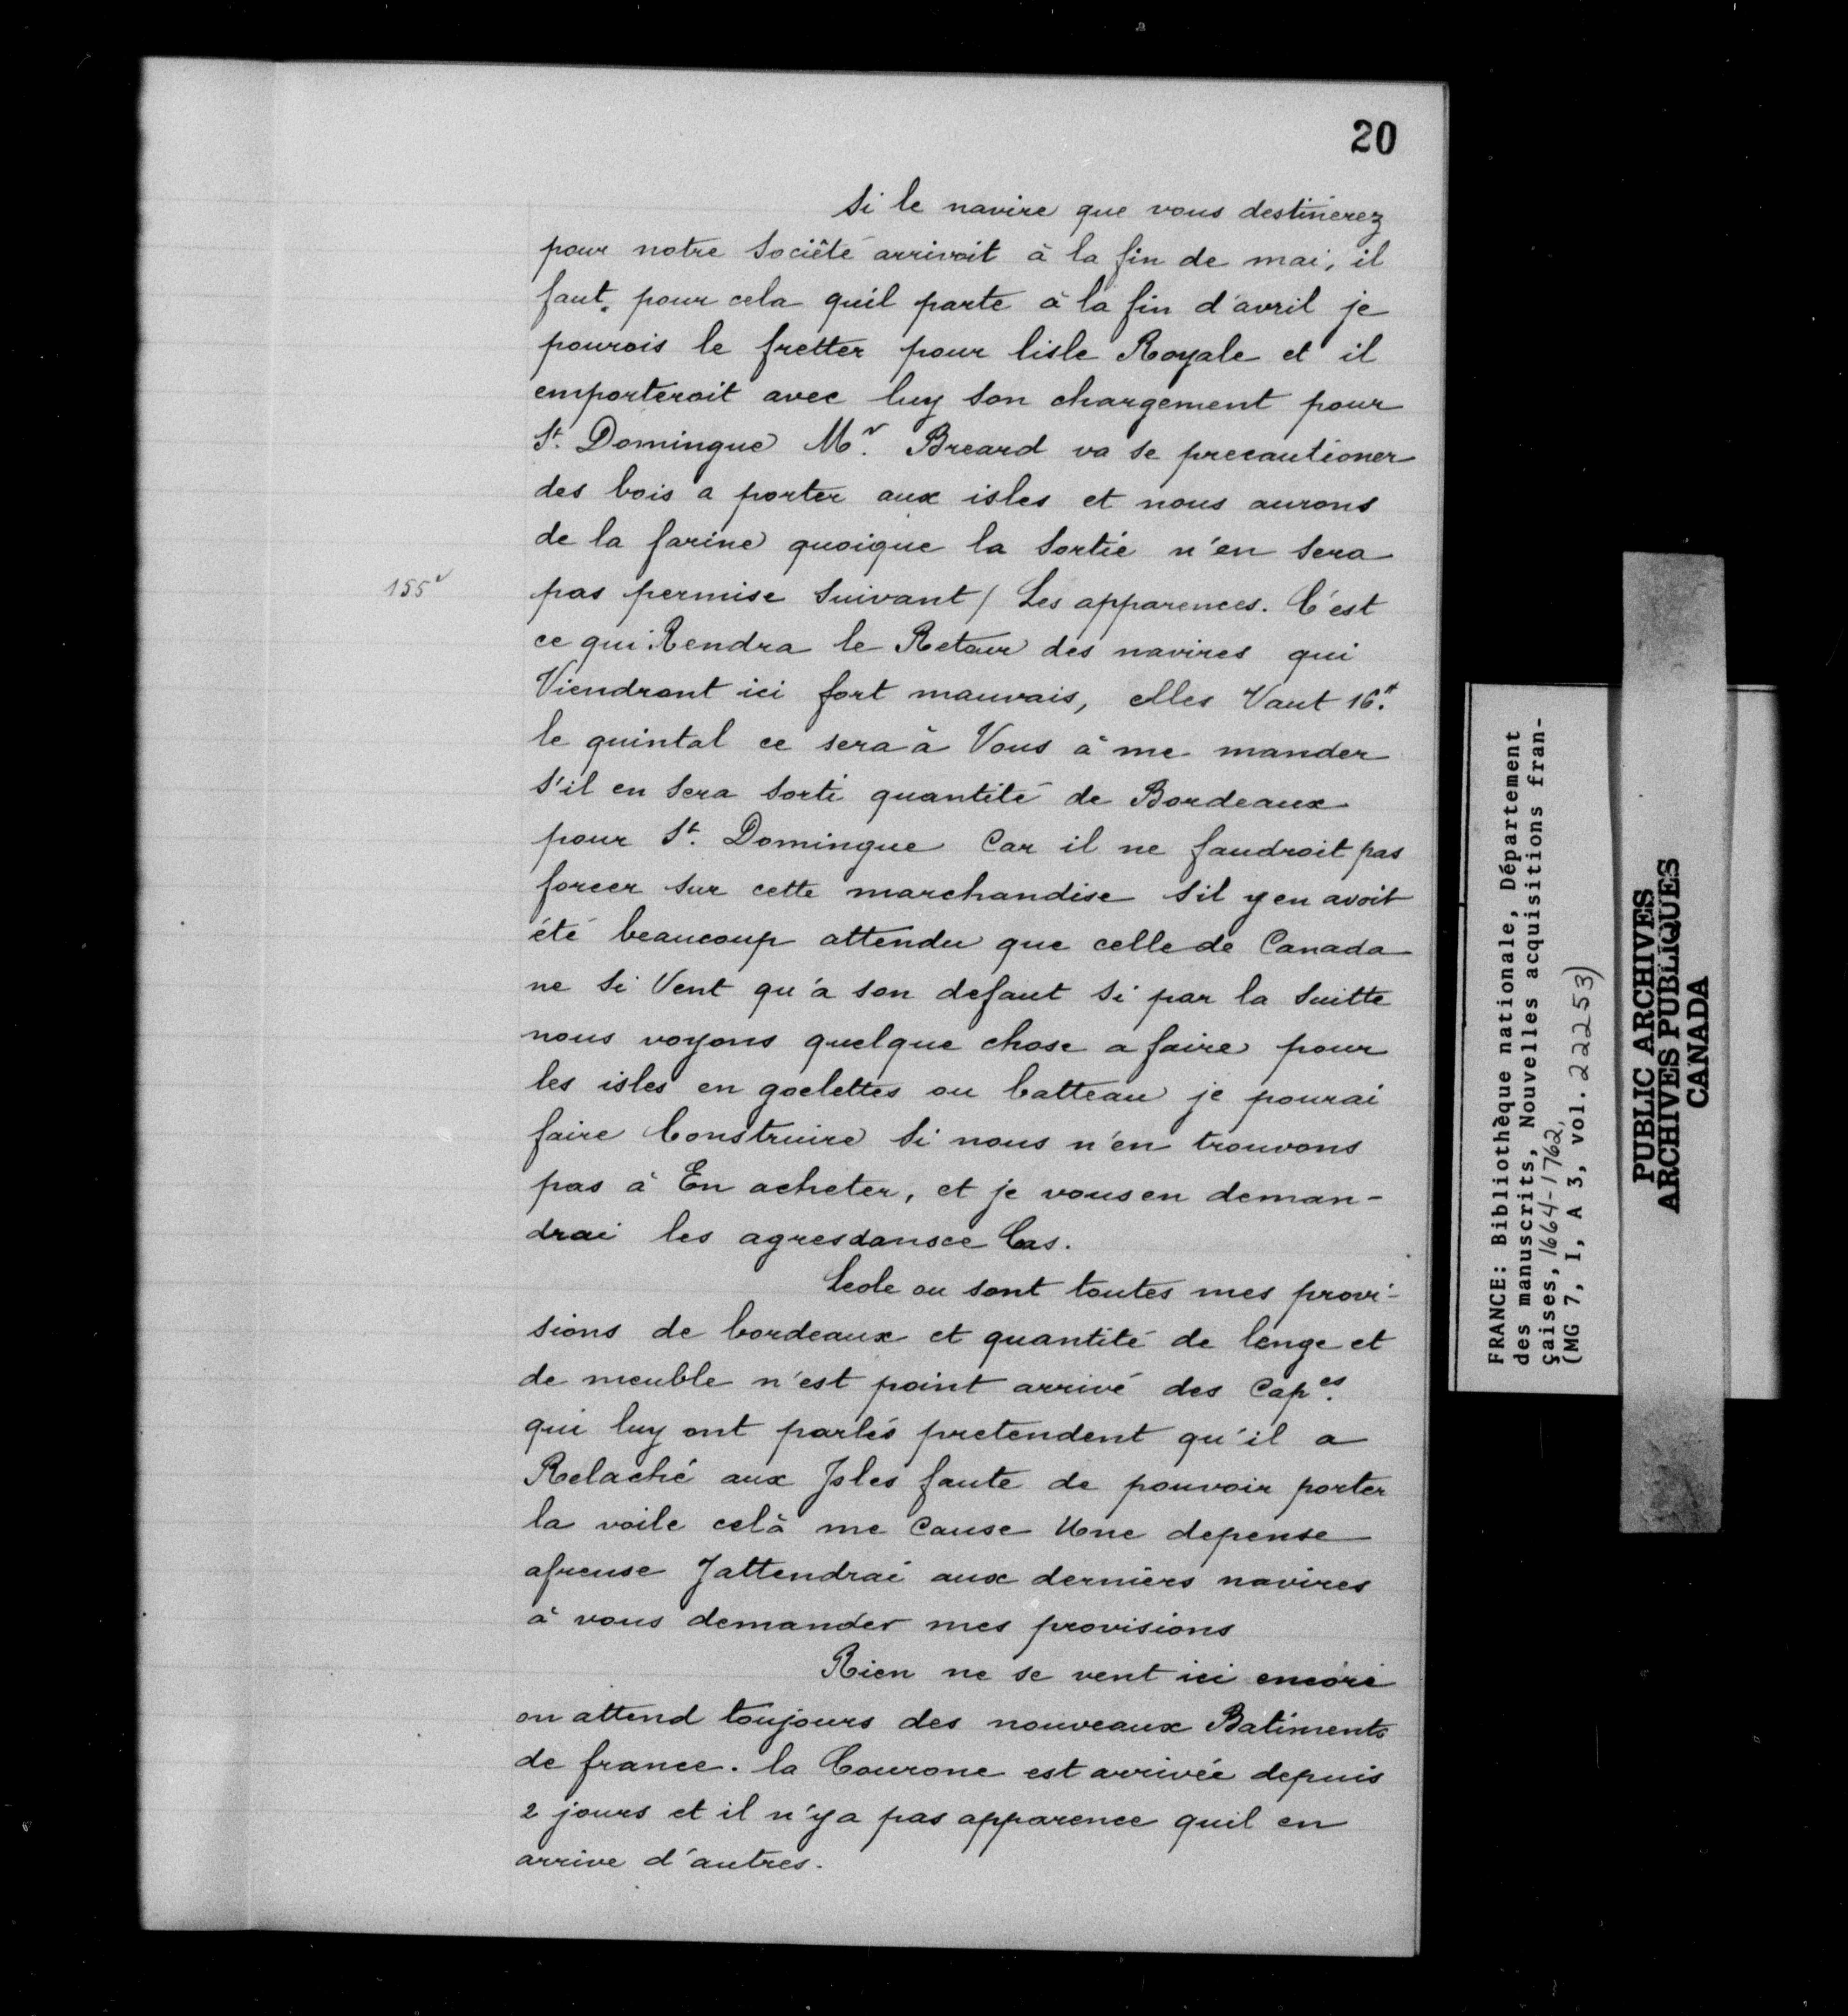 20
Si le navire que vous destinerez
pour notre Sociêté arrivoit à la fin de mai, il
faut, pour cela quil parte à la fin d'avril je
pourois le fretter pour lisle Royale et il
emporteroit avec luy son chargement pour
St. Domingue Mr. Breard va se precautioner
des bois a porter aux isles et nous aurons
de la farine quoique la sortie n'en sera
155v
pas permise suivant / Les apparences. C'est
ce qui Rendra le Retour des navires qui
Viendront ici fort mauvais, elles Vaut 16#.
le quintal ce sera à Vous à me mander
s'il en sera sorti quantité de Bordeaux
pour St. Domingue Car il ne faudroit pas
forcer sur cette marchandise sil y en avoit
été beaucoup attendu que celle de Canada
ne si Vent qu'a son defaut si par la suitte
nous voyons quelque chose a faire pour
les isles en goelettes ou batteau je pourai
faire Construire si nous n'en trouvons
pas à En acheter, et je vous en deman-
drai les agresdansce Cas.
Leole ou sont toutes mes provi-
sions de bordeaux et quantité de lenge et
de meuble n'est point arrivé des Capes.
qui luy ont parlés pretendent qu'il a
Relaché aux Isles faute de pouvoir porter
la voile celà me Cause Une depense
afreuse Jattendrai aux derniers navires
à vous demander mes provisions
Rien ne se vent ici encore
on attend toujours des nouveaux Batiments
de france. la Courone est arrivée depuis
2 jours et il n'y a pas apparence quil en
arrive d'autres.
FRANCE: Bibliothèque nationale, Département
des manuscrits, Nouvelles acquisitions fran-
çaises, 1664-1762,
(MG 7, I, A 3, vol. 22253)
PUBLIC ARCHIVES
ARCHIVES PUBLIQUES
CANADA